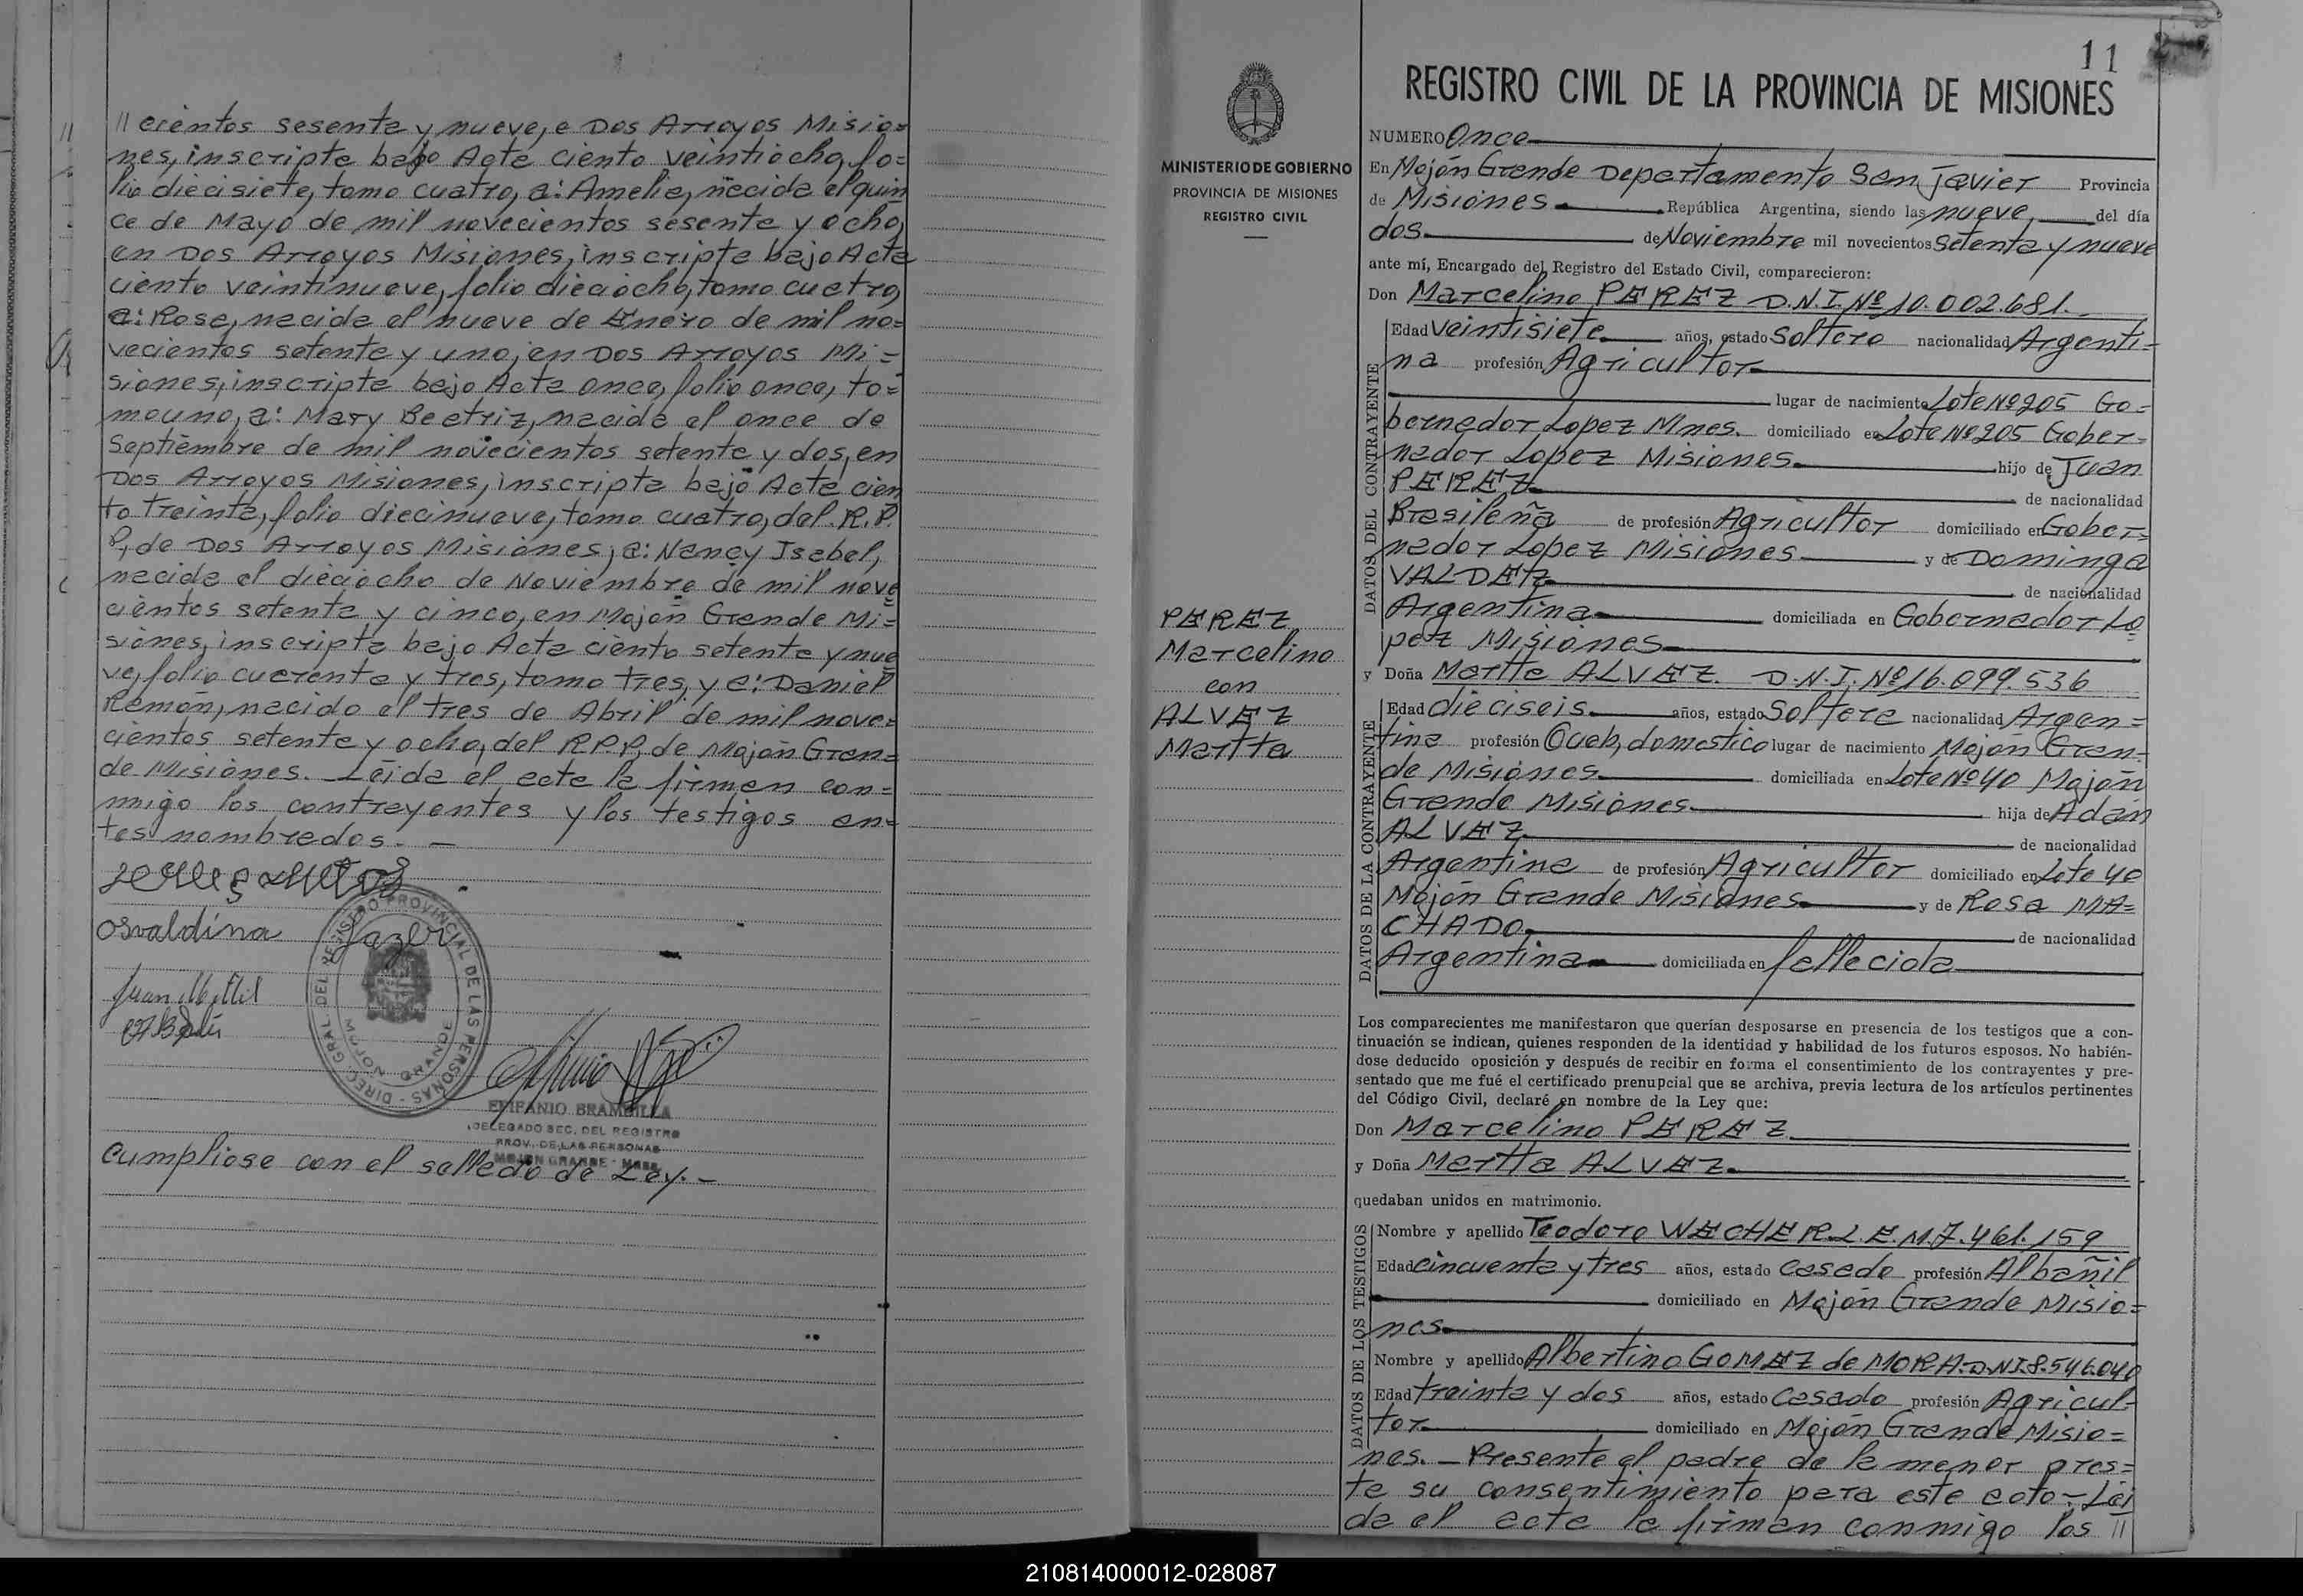 11 cientos sesenta y nueve, e Dos Arroyos Misio=
nes, inscripta bajo Acta ciento veintiocho, fo=
lio diecisiete, tomo cuatro, a: Amelia, nacida el quin
ce de Mayo de mil novecientos sesenta y ocho,
en Dos Arroyos Misiones, inscripta bajo Acta
ciento veintinueve, folio dieciocho, tomo cuatro,
a: Rosa, nacida el nueve de Enero de mil no=
vecientos setenta y uno, en Dos Arroyos Mi=
siones, inscripta bajo Acta once, folio once, to=
mo uno, a: Mary Beatriz, nacida el once de
Septiembre de mil novecientos setenta y dos, en
Dos Arroyos Misiones, inscripta bajo Acta cien
to treinta, folio diecinueve, tomo cuatro, del R.P.
P, de Dos Arroyos Misiones; a: Nancy Isabel,
nacida el dieciocho de Noviembre de mil nove
cientos setenta y cinco, en Mojón Grande Mi=
siones, inscripta bajo Acta ciento setenta y nue
ve, folio cuarenta y tres, tomo tres, y a: Daniel
Ramón, nacido el tres de Abril de mil nove=
cientos setenta y ocho, del R.P.P, de Mojón Gran=
de Misiones. Leída el acta la firman con=
migo los contrayentes y los testigos an=
tes nombrados. —
Osvaldina
DIREC. GRAL. DEL REGISTRO PROVINCIAL DE LAS PERSONAS
MOJON GRANDE
EPIFANIO BRAMBILLA
DELEGADO SEC. DEL REGISTRO
PROV. DE LAS PERSONAS
MOJON GRANDE - Mnes.
Cumpliose con el sellado de Ley. —
MINISTERIO DE GOBIERNO
PROVINCIA DE MISIONES
REGISTRO CIVIL
PEREZ
Marcelino
con
ALVEZ
Martta
11
REGISTRO CIVIL DE LA PROVINCIA DE MISIONES
NUMERO Once
En Mojón Grande Departamento San Javier Provincia
de Misiones República Argentina, siendo las nueve, del día
dos de Noviembre mil novecientos setenta y nueve
ante mí, Encargado del Registro del Estado Civil, comparecieron:
Don Marcelino PEREZ D.N.I. Nº 10.002.681.
DATOS DEL CONTRAYENTE
Edad veintisiete años, estado Soltero nacionalidad Argenti=
na profesión Agricultor
lugar de nacimiento Lote Nº 205 Go=
bernador Lopez Mnes. domiciliado en Lote Nº 205 Gober=
nador Lopez Misiones hijo de Juan
PEREZ de nacionalidad
Brasileña de profesión Agricultor domiciliado en Gober=
nador Lopez Misiones y de Dominga
VALDEZ de nacionalidad
Argentina domiciliada en Gobernador Lo
pez Misiones
y Doña Martta ALVEZ. D.N.I. Nº 16.099.536
DATOS DE LA CONTRAYENTE
Edad dieciseis años, estado Soltera nacionalidad Argen=
tina profesión Queh, domestico lugar de nacimiento Mojón Gran=
de Misiones domiciliada en Lote Nº 40 Mojón
Grande Misiones hija de Adán
ALVEZ de nacionalidad
Argentina de profesión Agricultor domiciliado en Lote 40
Mojón Grande Misiones y de Rosa MA=
CHADO de nacionalidad
Argentina domiciliada en fallecida
Los comparecientes me manifestaron que querían desposarse en presencia de los testigos que a con-
tinuación se indican, quienes responden de la identidad y habilidad de los futuros esposos. No habién-
dose deducido oposición y después de recibir en forma el consentimiento de los contrayentes y pre-
sentado que me fué el certificado prenupcial que se archiva, previa lectura de los artículos pertinentes
del Código Civil, declaré en nombre de la Ley que:
Don Marcelino PEREZ
y Doña Martta ALVEZ
quedaban unidos en matrimonio.
DATOS DE LOS TESTIGOS
Nombre y apellido Teodoro WECHER. L.E.M. 7.461.159
Edad cincuenta y tres años, estado Casado profesión Albañil
domiciliado en Mojón Grande Misio=
nes
Nombre y apellido Albertino GOMEZ de MORA. DNI. 8.546.040
Edad treinta y dos años, estado Casado profesión Agricul-
tor domiciliado en Mojón Grande Misio=
nes. — Presente el padre de la menor pres=
ta su consentimiento para este acto. — Leí
da el acta la firman conmigo los 11
210814000012-028087